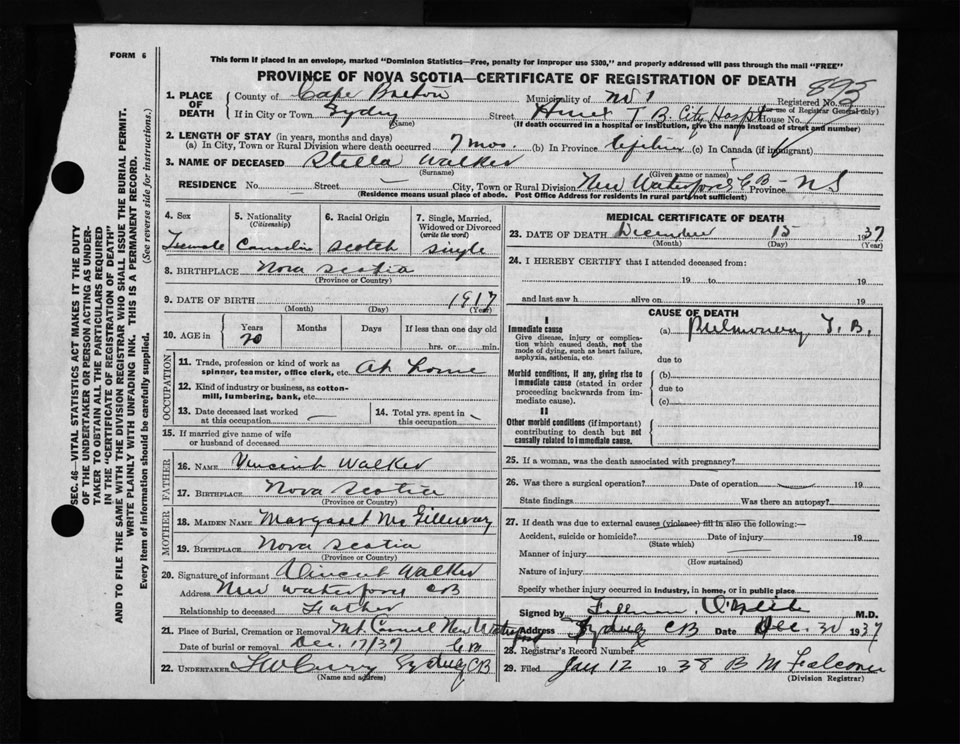 FORM 6
This form if placed in an envelope, marked "Dominion Statistics—Free, penalty for improper use $300," and properly addressed will pass through the mail "FREE"
PROVINCE OF NOVA SCOTIA—CERTIFICATE OF REGISTRATION OF DEATH
893
1. PLACE OF DEATH County of Cape Breton Municipality of No 1 Registered No.
(For use of Registrar General only)
If in City or Town Sydney Street T B. City Hospt House No.
(Name) (If death occurred in a hospital or institution, give the name instead of street and number)
2. LENGTH OF STAY (in years, months and days)
(a) In City, Town or Rural Division where death occurred 7 mos. (b) In Province lifetime (c) In Canada (if immigrant)
3. NAME OF DECEASED Stella Walker
(Surname) (Given name or names)
RESIDENCE No. Street City, Town or Rural Division New Waterford CB Province NS
(Residence means usual place of abode. Post Office Address for residents in rural parts not sufficient)
4. Sex Female
5. Nationality (Citizenship) Canadian
6. Racial Origin Scotch
7. Single, Married, Widowed or Divorced (write the word) Single
8. BIRTHPLACE Nova Scotia
(Province or Country)
9. DATE OF BIRTH 1917
(Month) (Day) (Year)
10. AGE in Years Months Days If less than one day old
20 hrs. or min.
OCCUPATION
11. Trade, profession or kind of work as spinner, teamster, office clerk, etc. At home
12. Kind of industry or business, as cotton-mill, lumbering, bank, etc.
13. Date deceased last worked at this occupation
14. Total yrs. spent in this occupation
15. If married give name of wife or husband of deceased
FATHER
16. NAME Vincent Walker
17. BIRTHPLACE Nova Scotia
(Province or Country)
MOTHER
18. MAIDEN NAME Margaret Mc Gillivray
19. BIRTHPLACE Nova Scotia
(Province or Country)
20. Signature of informant Vincent Walker
Address New Waterford CB
Relationship to deceased Father
21. Place of Burial, Cremation or Removal Mt Carmel New Waterford CB
Date of burial or removal Dec. 17/37
22. UNDERTAKER Sydney CB
(Name and address)
MEDICAL CERTIFICATE OF DEATH
23. DATE OF DEATH December 15 1937
(Month) (Day) (Year)
24. I HEREBY CERTIFY that I attended deceased from:
19 to 19
and last saw h alive on 19
CAUSE OF DEATH
I
Immediate cause (a) Pulmonary T. B.
Give disease, injury or complication which caused death, not the mode of dying, such as heart failure, asphyxia, asthenia, etc.
due to
Morbid conditions, if any, giving rise to immediate cause (stated in order proceeding backwards from immediate cause). (b)
due to
(c)
II
Other morbid conditions (if important) contributing to death but not causally related to immediate cause.
25. If a woman, was the death associated with pregnancy?
26. Was there a surgical operation? Date of operation 19
State findings Was there an autopsy?
27. If death was due to external causes (violence) fill in also the following:—
Accident, suicide or homicide? Date of injury 19
(State which)
Manner of injury
(How sustained)
Nature of injury
Specify whether injury occurred in industry, in home, or in public place
Signed by M.D.
Address Sydney CB Date Dec. 30 1937
28. Registrar's Record Number
29. Filed Jan 12 1938 B M Falconer
(Division Registrar)
SEC. 46—VITAL STATISTICS ACT MAKES IT THE DUTY
OF THE UNDERTAKER OR PERSON ACTING AS UNDER-
TAKER TO OBTAIN ALL THE PARTICULARS REQUIRED
IN THE "CERTIFICATE OF REGISTRATION OF DEATH"
AND TO FILE THE SAME WITH THE DIVISION REGISTRAR WHO SHALL ISSUE THE BURIAL PERMIT.
WRITE PLAINLY WITH UNFADING INK. THIS IS A PERMANENT RECORD.
Every item of information should be carefully supplied. (See reverse side for instructions.)